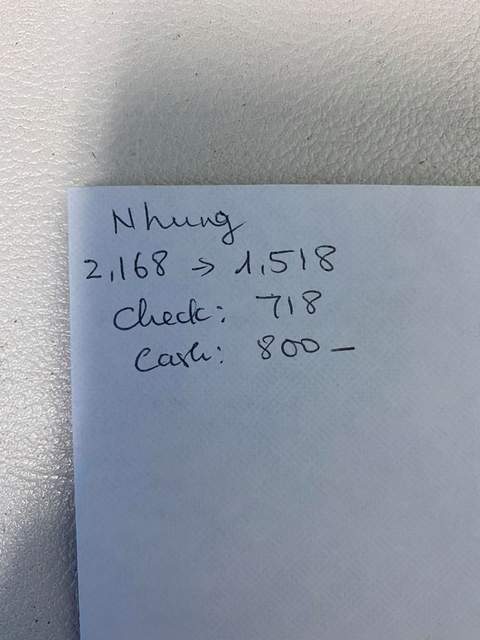 Nhung
2,168 → 1,518
Check: 718
Cash: 800 —